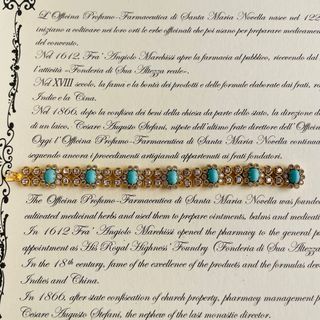 L'Officina Profumo-Farmaceutica di Santa Maria Novella nasce nel 122
iniziano a coltivare nei loro orti le erbe officinali che poi usano per preparare medicamen
del convento.
Nel 1612, Fra' Angiolo Marchissi apre la farmacia al pubblico, ricevendo dal
l'attività «Fonderia di Sua Altezza reale».
Nel XVIII secolo, la fama e la bontà dei prodotti e delle formule elaborate dai frati, ra
Indie e la Cina.
Nel 1866, dopo la confisca dei beni della chiesa da parte dello stato, la direzione d
di un laico, Cesare Augusto Stefani, nipote dell'ultimo frate direttore dell'O
Oggi l'Officina Profumo-Farmaceutica di Santa Maria Novella continua
seguendo ancora i procedimenti artigianali appartenuti ai frati fondatori.
The Officina Profumo-Farmaceutica di Santa Maria Novella was foun
cultivated medicinal herbs and used them to prepare ointments, balms and medication
In 1612 Fra' Angiolo Marchissi opened the pharmacy to the general p
appointment as His Royal Highness' Foundry (Fonderia di Sua Altezza
In the 18th century, fame of the excellence of the products and the formulas deve
Indies and China.
In 1866, after state confiscation of church property, pharmacy management p
Cesare Augusto Stefani, the nephew of the last monastic director.